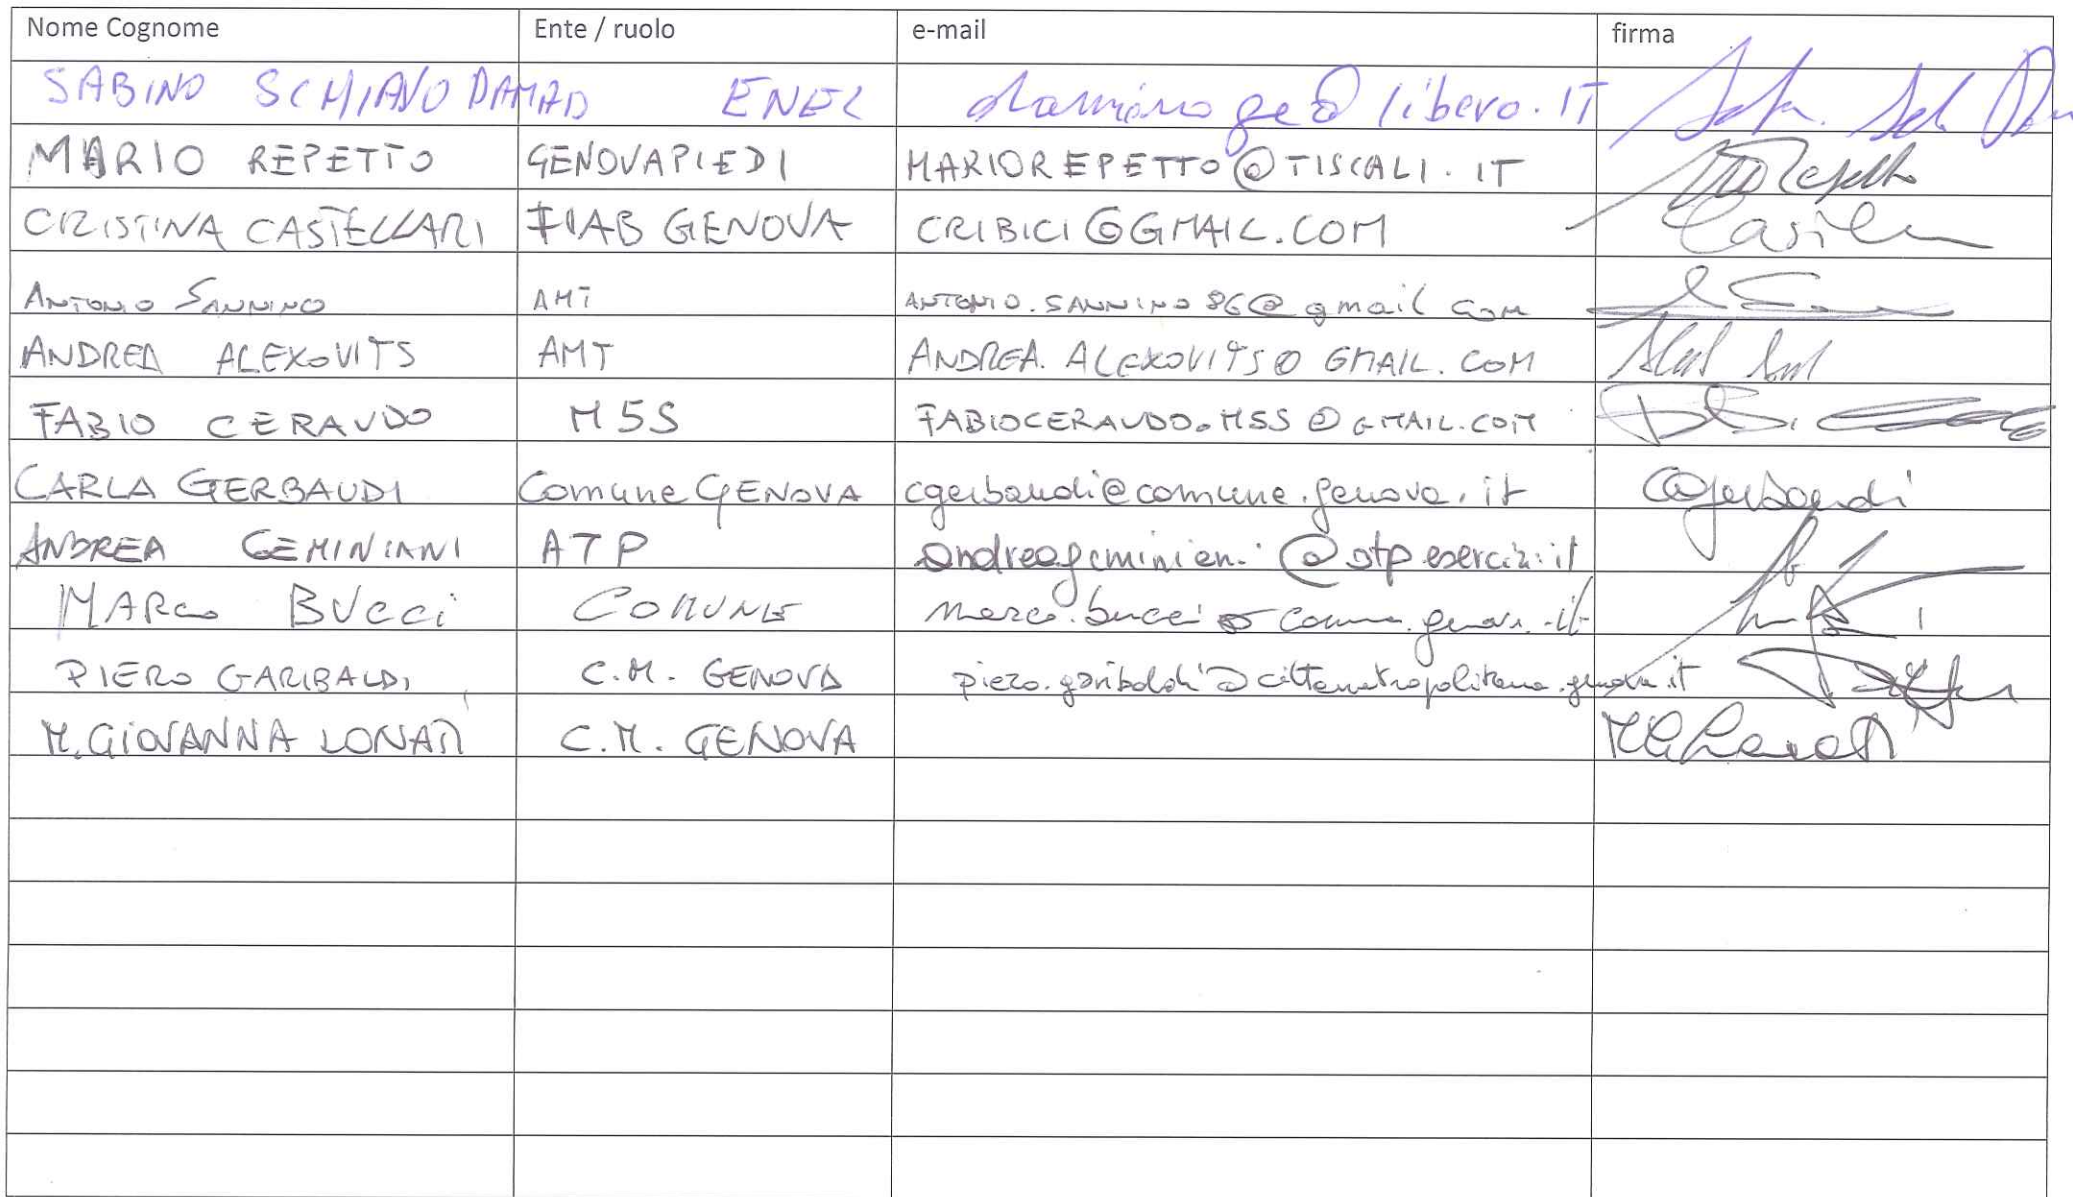 Nome Cognome Ente / ruolo e-mail firma
SABINO SCHIANO ENEL libero.IT
MARIO REPETTO GENOVAPIEDI MARIOREPETTO@TISCALI.IT
CRISTINA CASTELLARI FIAB GENOVA CRIBICI@GMAIL.COM
ANTONIO SANNINO AMT ANTONIO.SANNINO86@gmail com
ANDREA ALEXOVITS AMT ANDREA.ALEXOVITS@GMAIL.COM
FABIO CERAUDO M5S FABIOCERAUDO.M5S@GMAIL.COM
CARLA GERBAUDI Comune GENOVA cgerbaudi@comune.genova.it cgerbaudi
ANDREA GEMINIANI ATP andreageminiani@atpesercizi.it
MARCO BUCCI COMUNE
PIERO GARIBALDI C.M. GENOVA piero.garibaldi@cittametropolitana.genova.it
M.GIOVANNA LONATI C.M. GENOVA